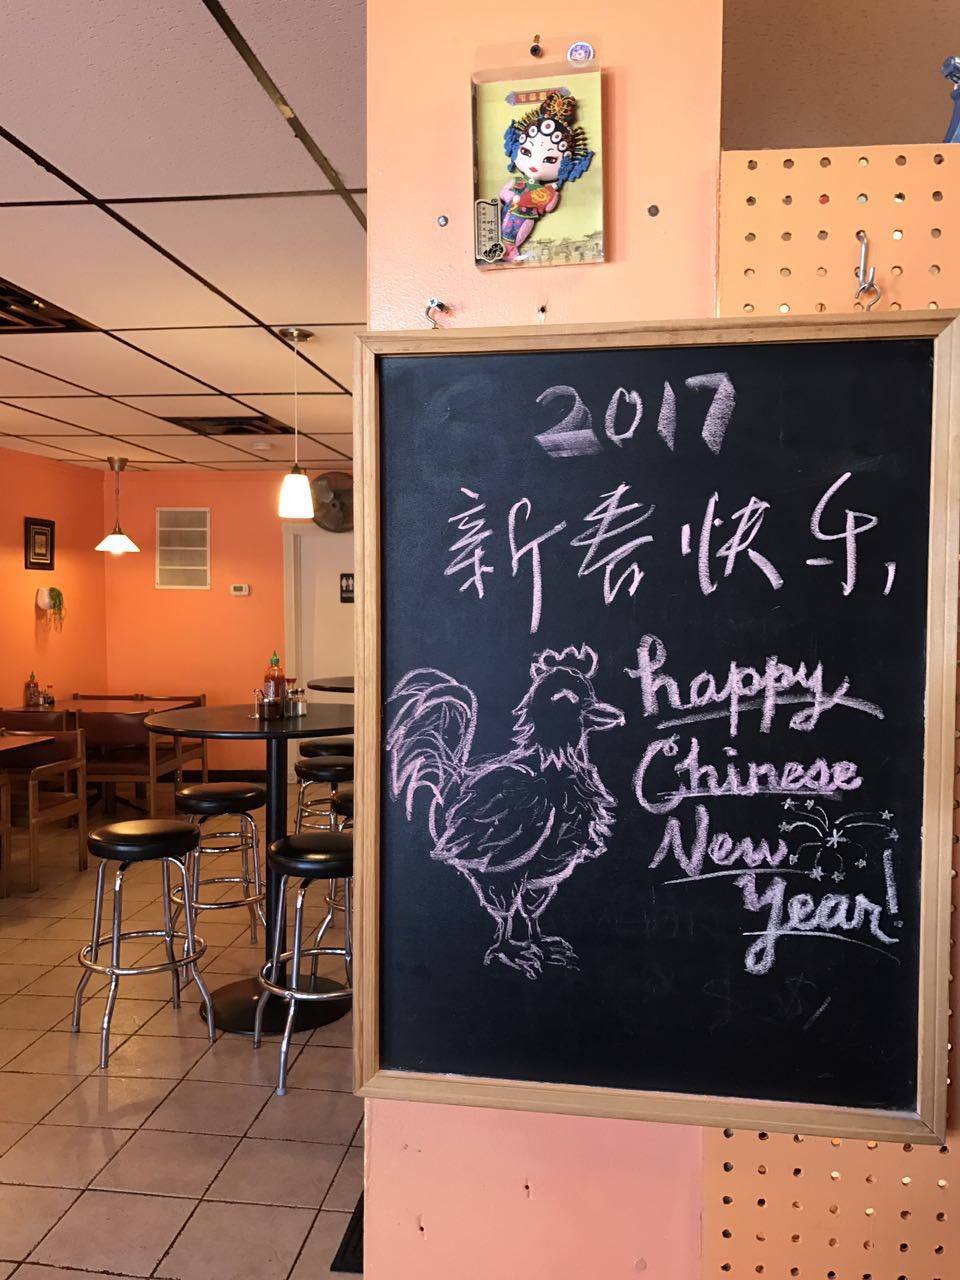 2017
新春快乐,
happy
Chinese
New
Year!